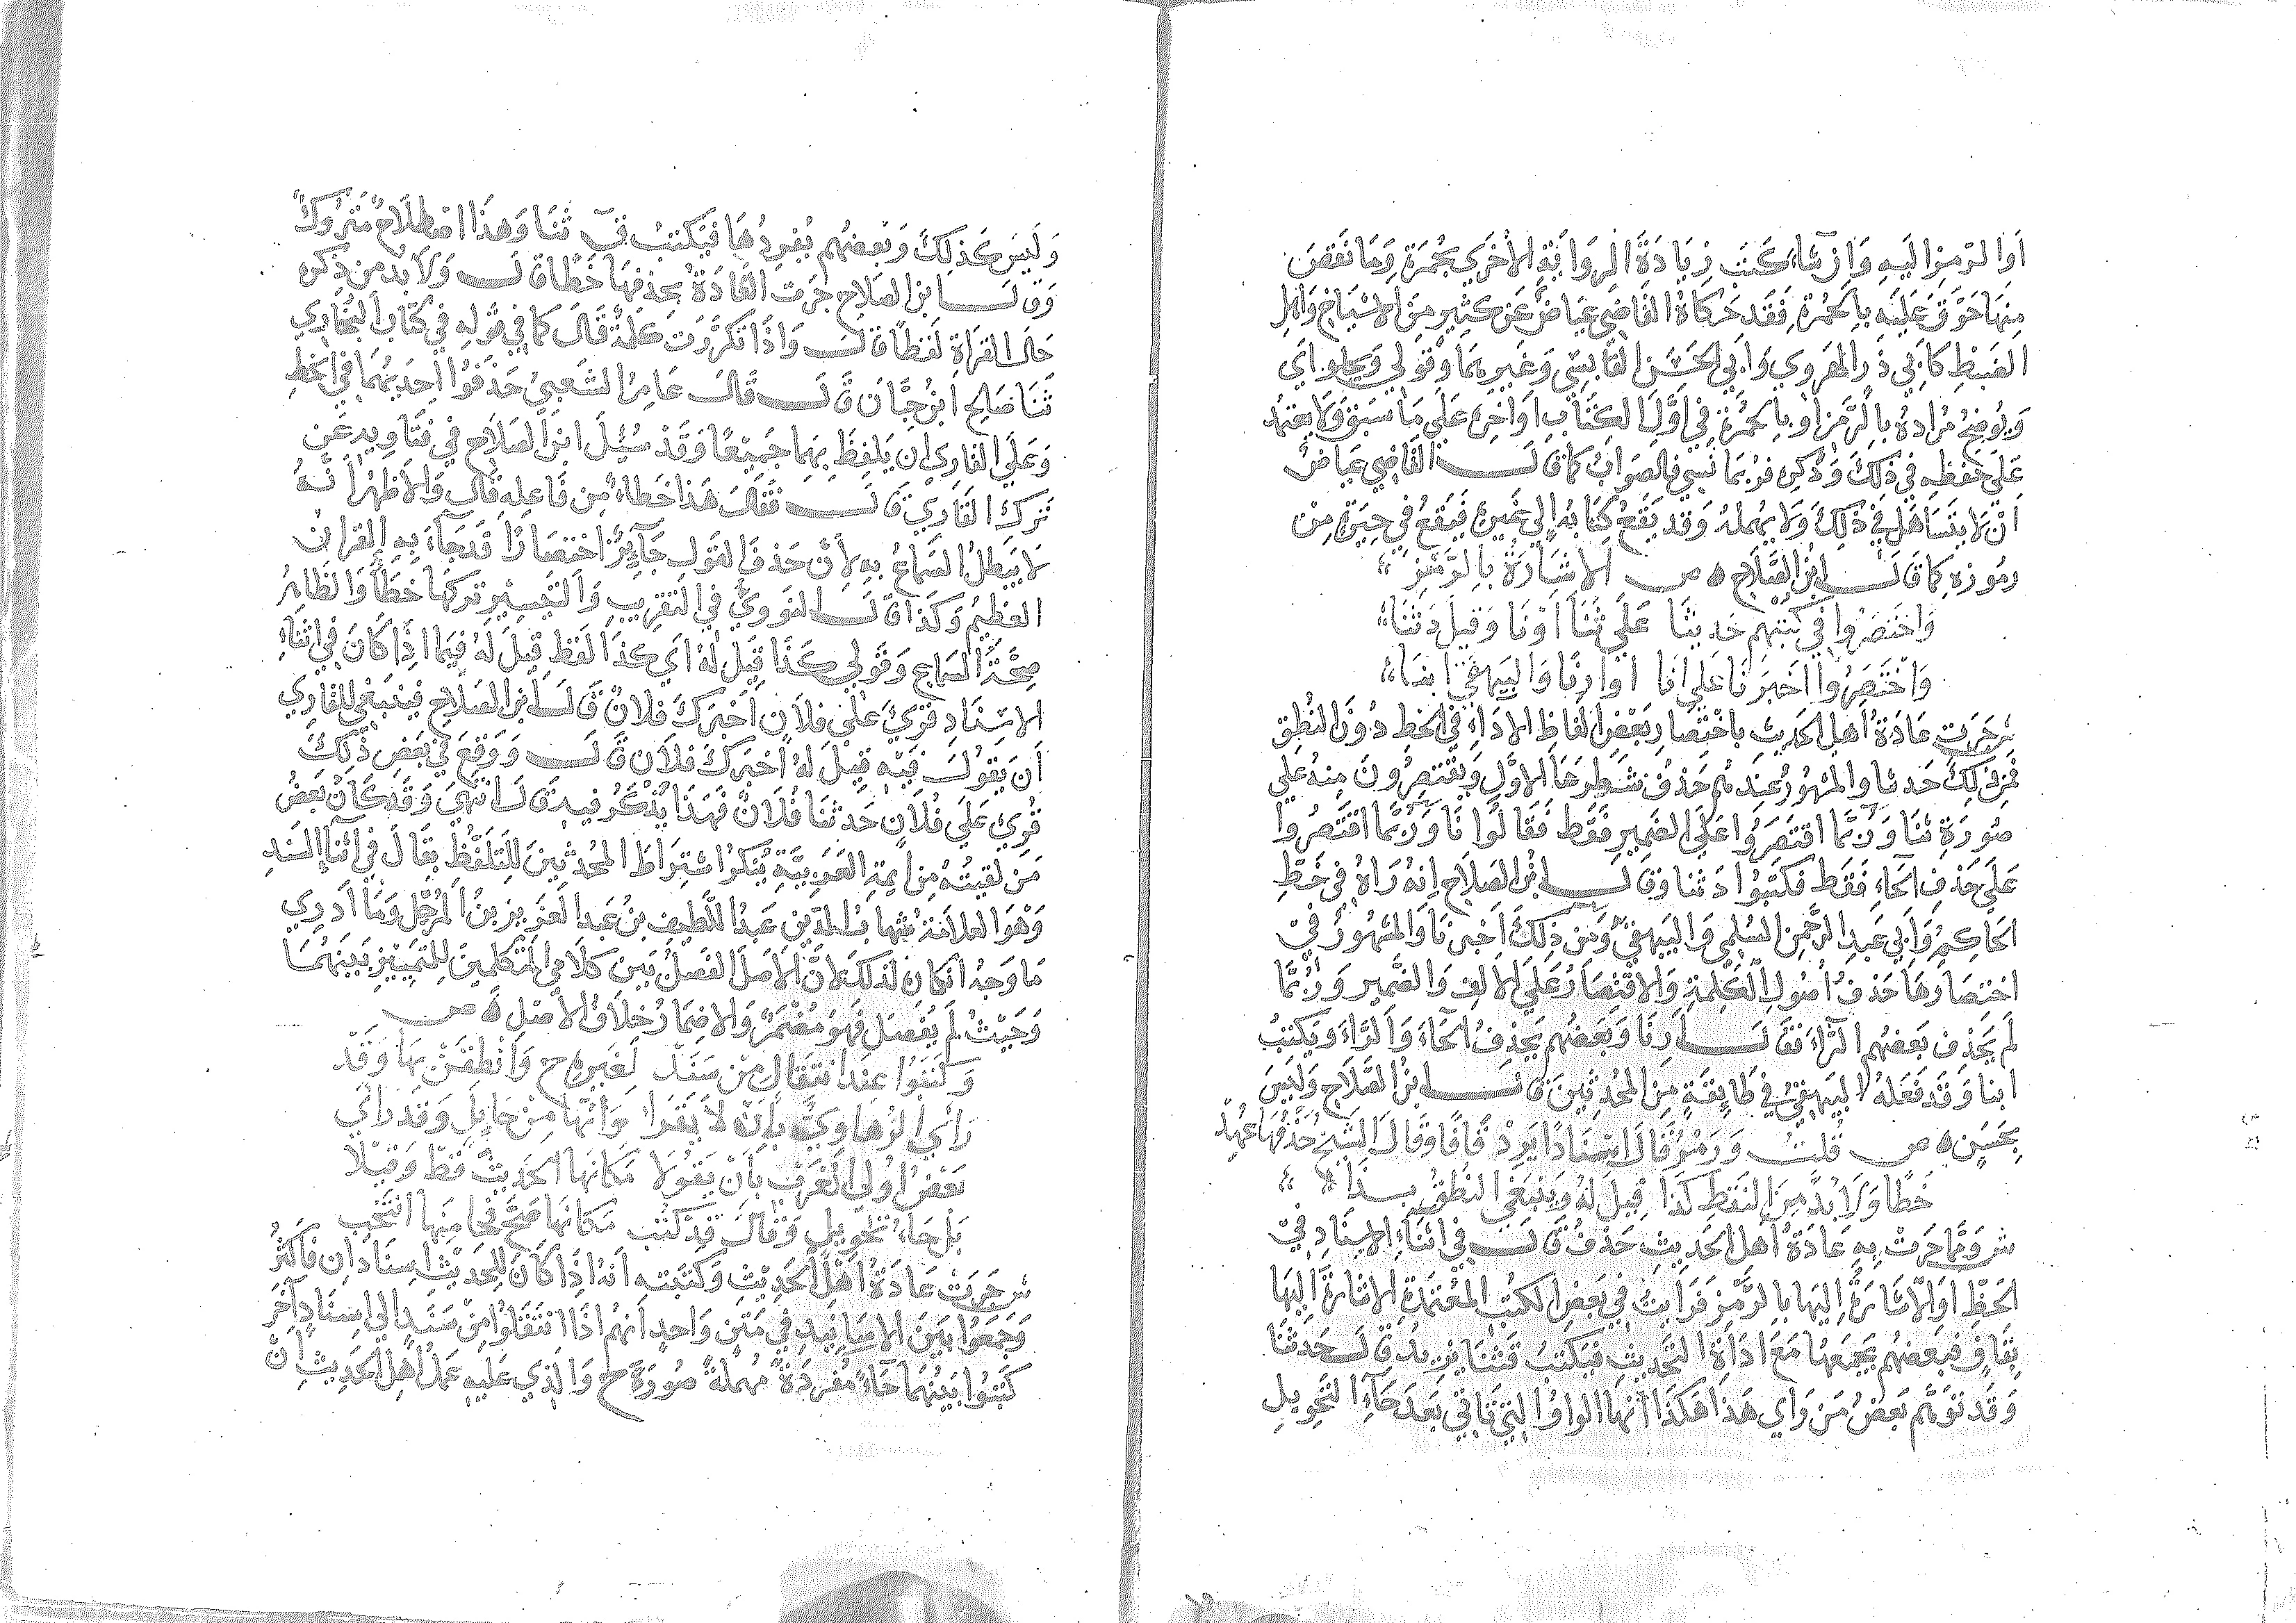 اوالرمز اليه وان شاء كتب زيادة الرواية الاخري بحمرة وما نقص
منها حوق عليه بالحمرة فقد حكاه القاضي عياض عن كثير من الاشياخ واهل
الضبط كابي ذر الهروي وابي الحسن القابسي وغيرهما وقولي ويجلو اي
ويوضح مراده بالرمز او بالحمرة في اول الكتاب او اخره علي ما سبق ولا يعتمد
علي حفظه في ذلك وذكره فربما نسي فالصواب كما قال القاضي عياض
ان لا يتساهل في ذلك ولا يهمله وقد يقع كتابه الي غيره فيقع في حيرة من
رموزه كما قال ابن الصلاح ه ص الاشارة بالرمز
واختصروا في كتبهم حدثنا علي ثنا او نا وقيل دثنا
واختصروا اخبرنا علي انا او ارنا والبيهقي ابنا
ش جرت عادة اهل الحديث باختصار بعض الفاظ الاداء في الخط دون النطق
فمن ذلك حدثنا والمشهور عندهم حذف شطرها الاول ويقتصرون منه علي
صورة ثنا وربما اقتصروا علي الضمير فقط فقالوا نا وربما اقتصروا
علي حذف الحاء فقط فكتبوا دثنا وقال ابن الصلاح انه راه في خط
الحاكم وابي عبد الرحمن السلمي والبيهقي ومن ذلك اخبرنا والمشهور في
اختصارها حذف اصول الكلمة والاقتصار علي الالف والضمير وربما
لم يحذف بعضهم الراء فقال ارنا وبعضهم يحذف الحاء والراء ويكتب
ابنا وقد فعله البيهقي في طايفة من المحدثين قال ابن الصلاح وليس
بحسن ه ص قلت ورمز قال اسنادا يرد قافا وقال الشيخ حذفها عهد
خطا ولا بد من النطق كذا قيل له وينبغي النطق بذا
ش ومما جرت به عادة اهل الحديث حذف قال في اثناء الاسناد في
الخط او الاشارة اليها بالرمز فرايت في بعض الكتب المعتمدة الاشارة اليها
بقاف فبعضهم يجمعها مع اداة التحديث فيكتب قثنا يريد قال حدثنا
وقد توهم بعض من راي هذا هكذا انها الواو التي تاتي بعد حاء التحويل
وليس كذلك وبعضهم يفردها فيكتب ق ثنا وهذا اصطلاح متروك
وقال ابن الصلاح جرت العادة بحذفها خطا قال ولا بد من ذكره
حال القراة لفظا قال واذا تكررت كلمة قال كما في قوله في كتاب البخاري
ثنا صالح ابن حبان قال قال عامر الشعبي حذفوا احديهما في الخط
وعلي القاري ان يلفظ بهما جميعا وقد سئل ابن الصلاح في فتاويه عن
ترك القاري قال فقال هذا خطاء من فاعله قال والاظهر انه
لا يبطل السماع به لان حذف القول جائز اختصارا قد جاء به القران
العظيم وكذا قال النووي في التقريب والتيسير تركها خطأ والظاهر
صحة السماع وقولي كذا قيل له اي كذا لفظ قيل له فيما اذا كان في اثناء
الاسناد قرئ علي فلان اخبرك فلان قال ابن الصلاح فينبغي للقاري
ان يقول فيه قيل له اخبرك فلان قال ووقع في بعض ذلك
قرئ علي فلان حدثنا فلان فهذا يذكر فيه قال انتهي وقد كان بعض
من لقيته من ايمة العربية ينكر اشتراط المحدثين للتلفظ بقال في اثنا السند
وهو العلامة شهاب الدين عبد اللطيف بن عبد العزيز بن المرحل وما ادري
ما وجه انكاره لذلك لان الاصل الفصل بين كلامي المتكلمين للتمييز بينهما
وحيث لم يفصل فهو مضمر والاضمار خلاف الاصل ه ص
وكتبوا عند انتقال من سند لغيره ح وانطقن بها وقد
راي الرهاوي بان لا يقرا وانها من حايل وقد راي
بعض اولي الغرب بان يقولا مكانها الحديث قط وقيلا
بل حاء تحويل وقال قد كتب مكانها صح فحا منها انتخب
ش جرت عادة اهل الحديث وكتبته انه اذا كان للحديث اسنادان فاكثر
وجمعوا بين الاسانيد في متن واحد انهم اذا انتقلوا من سند الي اسناد آخر
كتبوا بينهما حاء مفردة مهملة صورة ح والذي عليه عمل اهل الحديث ان